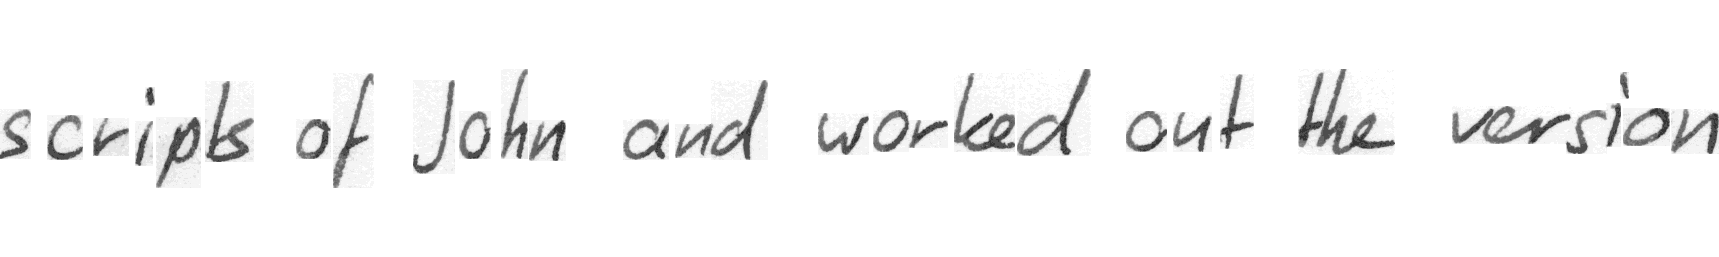 scripts of John and worked out the version